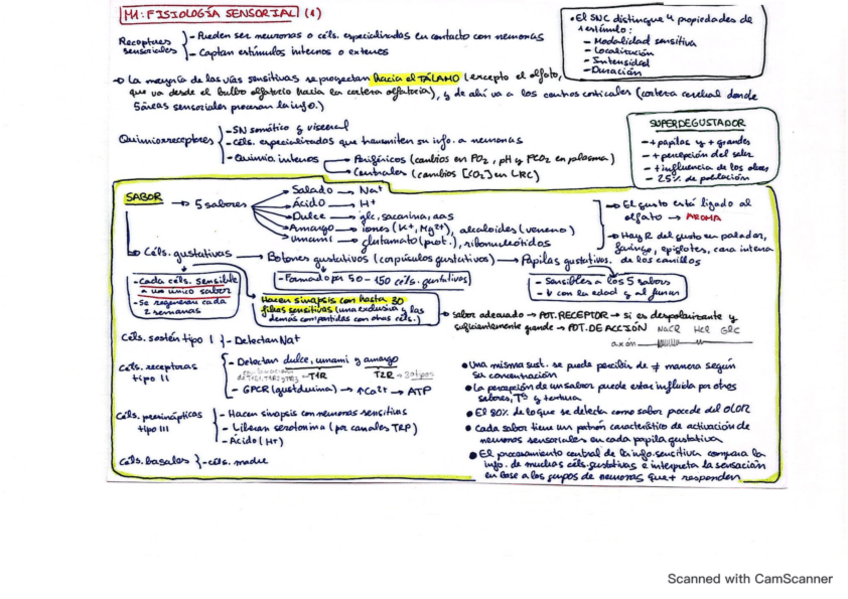 M1: FISIOLOGÍA SENSORIAL (1)
Receptores sensoriales
- Pueden ser neuronas o céls. especializadas en contacto con neuronas
- Captan estímulos internos o externos
• El SNC distingue 4 propiedades de
estímulo:
- Modalidad sensitiva
- Localización
- Intensidad
- Duración
La mayoría de las vías sensitivas se proyectan hacia el TÁLAMO (excepto el olfato,
que va desde el bulbo olfatorio hacia la corteza olfatoria), y de ahí va a los centros corticales (corteza cerebral donde
5 áreas sensoriales procesan la info.)
Quimiorreceptores
- SN somático y visceral
- Céls. especializadas que transmiten su info. a neuronas
- Quimio. internos
Periféricos (cambios en PO2, pH y PCO2 en plasma)
Centrales (cambios [CO2] en LRC)
SUPERDEGUSTADOR
- + papilas y + grandes
- + percepción del sabor
- + influencia de los olores
- 25% de población
SABOR → 5 sabores
Salado → Na+
Ácido → H+
Dulce → glc, sacarina, aas
Amargo → iones (K+, Mg2+), alcaloides (veneno)
Umami → glutamato (prot.), ribonucleótidos
→ El gusto está ligado al
olfato → AROMA
→ Hay R del gusto en paladar,
faringe, epiglotis, cara interna
de los carrillos
Céls. gustativas → Botones gustativos (corpúsculos gustativos) → Papilas gustativas
- Cada céls. sensible
a un único sabor
- Se regeneran cada
2 semanas
- Formado por 50 - 150 céls. gustativas
- Sensibles a los 5 sabores
- ↓ con la edad y al fumar
Hacen sinapsis con hasta 30
fibras sensitivas (una exclusiva y las
demás compartidas con otras céls.)
Sabor adecuado → POT. RECEPTOR → si es despolarizante y
suficientemente grande → POT. DE ACCIÓN NaCl HCl GLC
axón
Céls. sostén tipo I } - Detectan Na+
Céls. receptoras
tipo II
- Detectan dulce, umami y amargo
T1R T2R → 30 tipos
- GPCR (gustducina) → ↑Ca2+ → ATP
Céls. presinápticas
tipo III
- Hacen sinapsis con neuronas sensitivas
- Liberan serotonina (por canales TRP)
- Ácido (H+)
Céls. basales } - céls. madre
• Una misma sust. se puede percibir de ≠ manera según
su concentración
• La percepción de un sabor puede estar influida por otros
sabores, Tª y textura
• El 80% de lo que se detecta como sabor procede del OLOR
• Cada sabor tiene un patrón característico de activación de
neuronas sensoriales en cada papila gustativa
• El procesamiento central de la info. sensitiva compara la
info. de muchas céls. gustativas e interpreta la sensación
en base a los grupos de neuronas que + responden
Scanned with CamScanner